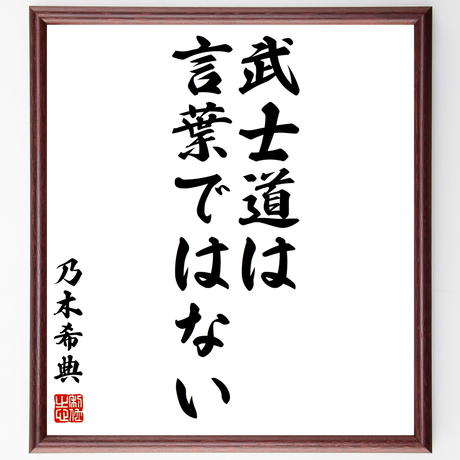 武士道は
言葉ではない
乃木希典